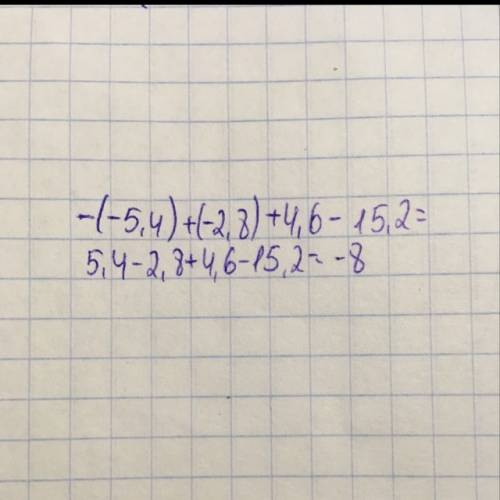 -(-5,4)+(-2,8)+4,6-15,2=
5,4-2,8+4,6-15,2=-8